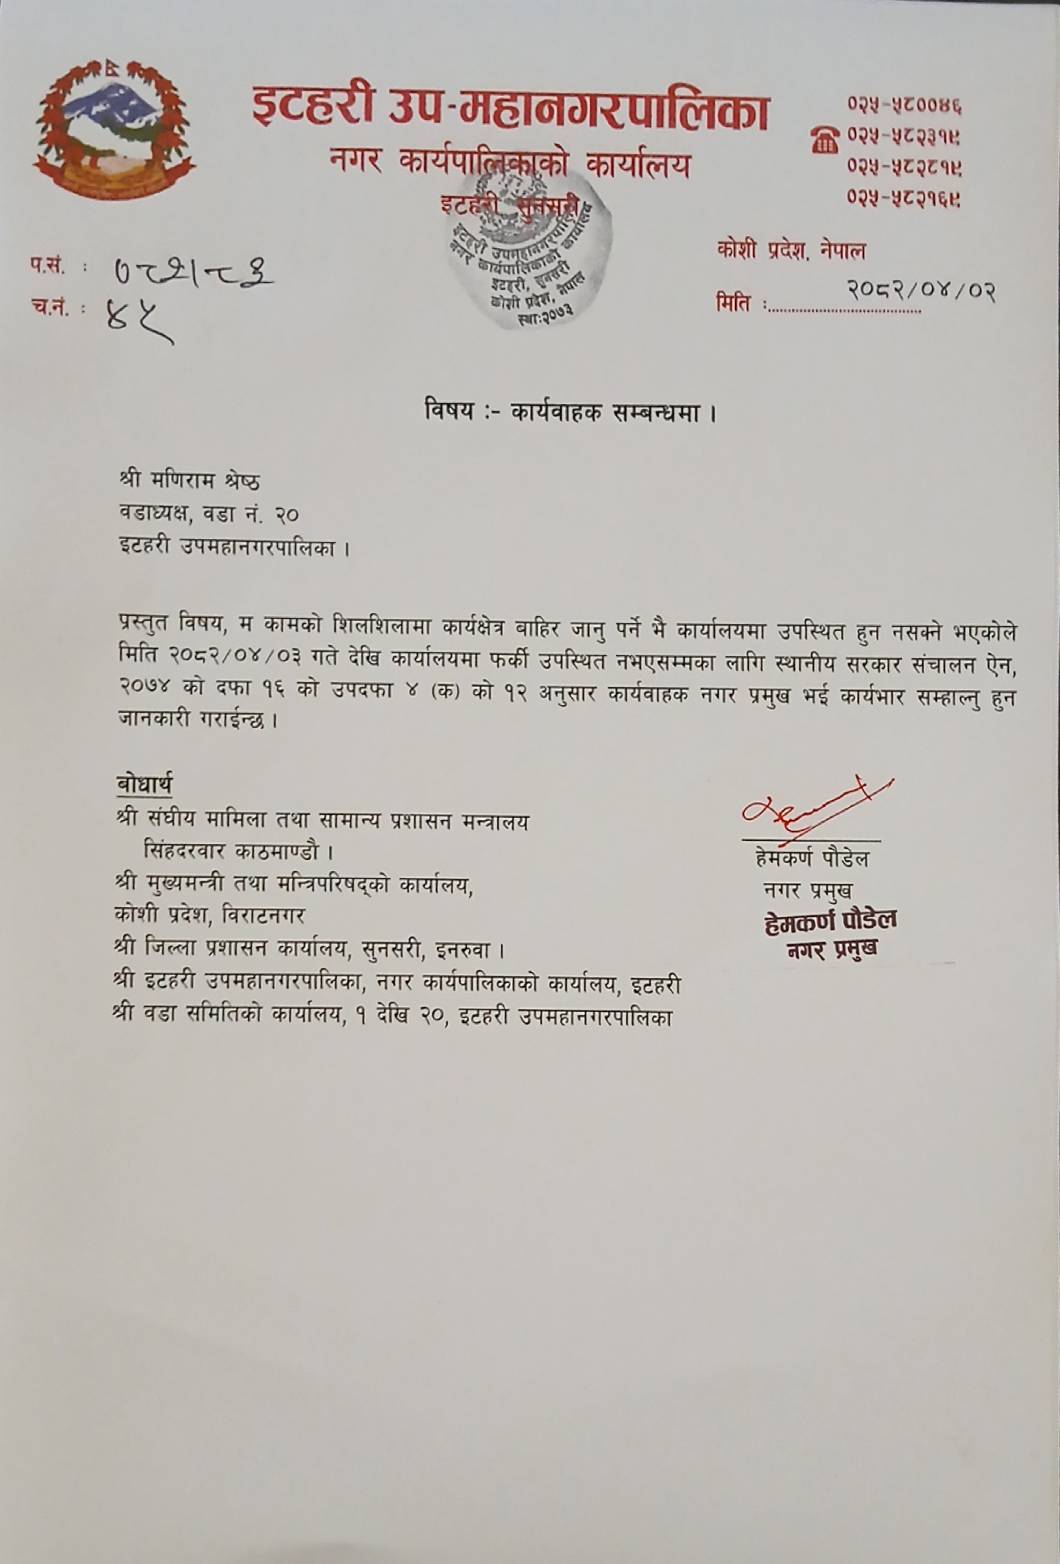 इटहरी उप-महानगरपालिका
नगर कार्यपालिकाको कार्यालय
इटहरी, सुनसरी
०२५-५८००४६
०२५-५८२३१९
०२५-५८२८१९
०२५-५८२१६९
कोशी प्रदेश, नेपाल
प.सं. : ०८२/८३
च.नं. : ४५
मिति : २०८२/०४/०२
इटहरी उपमहानगरपालिका
नगर कार्यपालिकाको कार्यालय
इटहरी, सुनसरी
कोशी प्रदेश, नेपाल
स्था:२०७३
विषय :- कार्यवाहक सम्बन्धमा ।
श्री मणिराम श्रेष्ठ
वडाध्यक्ष, वडा नं. २०
इटहरी उपमहानगरपालिका ।
प्रस्तुत विषय, म कामको शिलशिलामा कार्यक्षेत्र बाहिर जानु पर्ने भै कार्यालयमा उपस्थित हुन नसक्ने भएकोले
मिति २०८२/०४/०३ गते देखि कार्यालयमा फर्की उपस्थित नभएसम्मका लागि स्थानीय सरकार संचालन ऐन,
२०७४ को दफा १६ को उपदफा ४ (क) को १२ अनुसार कार्यवाहक नगर प्रमुख भई कार्यभार सम्हाल्नु हुन
जानकारी गराईन्छ ।
बोधार्थ
श्री संघीय मामिला तथा सामान्य प्रशासन मन्त्रालय
सिंहदरवार काठमाण्डौ ।
श्री मुख्यमन्त्री तथा मन्त्रिपरिषद्को कार्यालय,
कोशी प्रदेश, विराटनगर
श्री जिल्ला प्रशासन कार्यालय, सुनसरी, इनरुवा ।
श्री इटहरी उपमहानगरपालिका, नगर कार्यपालिकाको कार्यालय, इटहरी
श्री वडा समितिको कार्यालय, १ देखि २०, इटहरी उपमहानगरपालिका
हेमकर्ण पौडेल
नगर प्रमुख
हेमकर्ण पौडेल
नगर प्रमुख